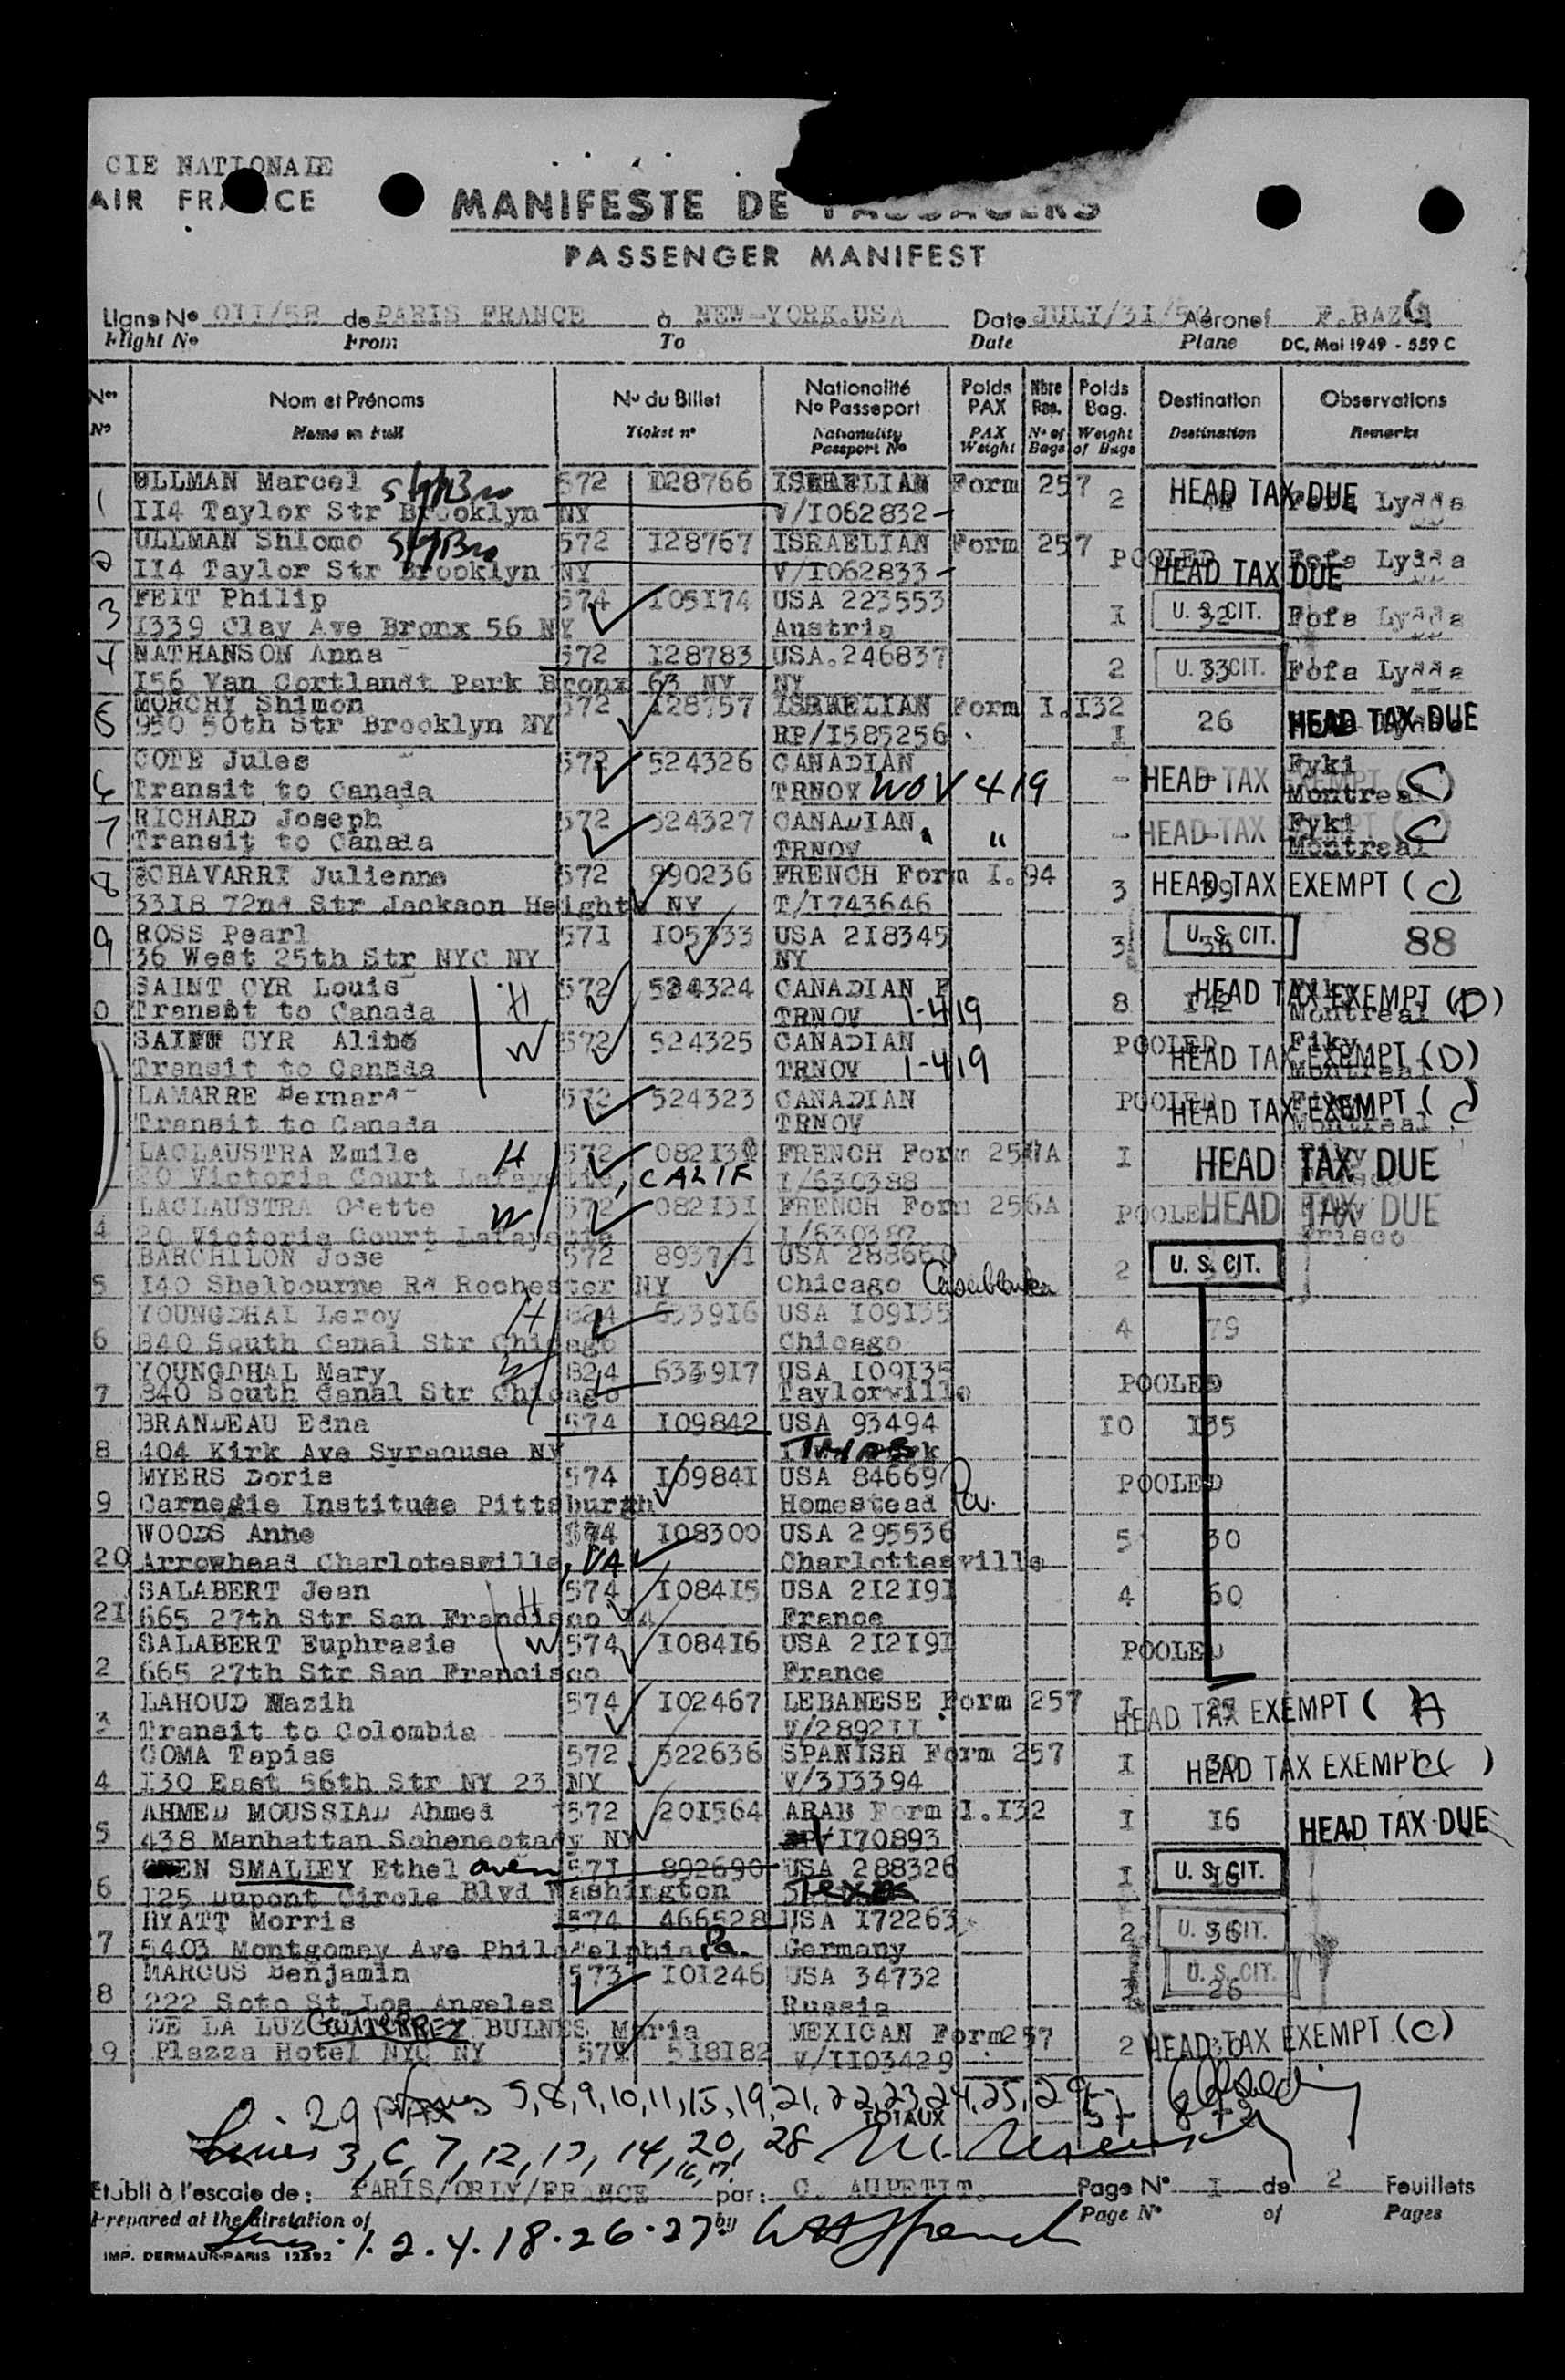 CIE NATIONALE
AIR FRANCE
MANIFESTE DE PASSAGERS
PASSENGER MANIFEST
Ligne No 011/58 de PARIS FRANCE à NEW-YORK.USA Date JULY/31/ Aéronef F.BAZG
Flight No From To Date Plane DC, Mai 1949 - 559 C
Nos Nom et Prénoms No du Billet Nationalité No Passeport Poids PAX Nbre Bag. Poids Bag. Destination Observations
No Name en full Ticket no Nationality Passport No PAX Weight No of Bags Weight of Bags Destination Remarks
1 ULLMAN Marcel 572 128766 ISRAELIAN Form 257 2 HEAD TAX DUE Lydda
114 Taylor Str Brooklyn NY V/1062832
2 ULLMAN Shlomo 572 128767 ISRAELIAN Form 257 POOLED Fofa Lydda
114 Taylor Str Brooklyn NY V/1062833 HEAD TAX DUE
3 FEIT Philip 574 105174 USA 223553 I U. S. CIT. Fofa Lydda
1339 Clay Ave Bronx 56 NY Austria
4 NATHANSON Anna 572 128783 USA.246837 2 33 U. S. CIT. Fofa Lydda
156 Van Cortlandt Park Bronx 63 NY NY
5 MORCHY Shimon 572 128757 ISRAELIAN Form I.132 I 26 HEAD TAX DUE
950 50th Str Brooklyn NY RP/1585256
6 COTE Jules 572 524326 CANADIAN - HEAD TAX EXEMPT (C) Fyki
Transit to Canada TRNOV NOV 419 Montreal
7 RICHARD Joseph 572 524327 CANADIAN " - HEAD TAX EXEMPT (C) Fyki
Transit to Canada TRNOV Montreal
8 ECHAVARRI Julienne 572 890236 FRENCH Form I.94 3 HEAD TAX EXEMPT (C)
3318 72nd Str Jackson Heights NY T/1743646
9 ROSS Pearl 571 105333 USA 218345 3 U. S. CIT. 88
36 West 25th Str NYC NY NY
0 SAINT CYR Louis H 572 524324 CANADIAN 8 142 HEAD TAX EXEMPT (D)
Transit to Canada TRNOV 1-419 Montreal
SAINT CYR W 572 524325 CANADIAN POOLED Fiky
Transit to Canada TRNOV 1-419 HEAD TAX EXEMPT (D) Montreal
LAMARRE Bernard 572 524323 CANADIAN POOLED HEAD TAX EXEMPT (C)
Transit to Canada TRNOV Montreal
LACLAUSTRA Emile H 572 082130 FRENCH Form 257A I HEAD TAX DUE
20 Victoria Court Lafayette, CALIF I/630388
4 LACLAUSTRA Odette W 572 082131 FRENCH Form 256A POOLED HEAD TAX DUE
20 Victoria Court Lafayette I/630387 Frisco
5 BARCHILON Jose 572 USA 288660 2 U. S. CIT.
140 Shelbourne Rd Rochester NY Chicago Casablanca
6 YOUNGDHAL Leroy H 824 633916 USA 109135 4 79
840 South Canal Str Chicago Chicago
7 YOUNGDHAL Mary W 824 633917 USA 109135 POOLED
840 South Canal Str Chicago Taylorville
8 BRANDEAU Edna 574 109842 USA 93494 10 135
404 Kirk Ave Syracuse NY
9 MYERS Doris 574 109841 USA 84669 POOLED
Carnegie Institute Pittsburgh Homestead Pa.
20 WOODS Anne 574 108300 USA 295536 5 30
Arrowhead Charlotesville, VA Charlottesville
21 SALABERT Jean H 574 108415 USA 212191 4 60
665 27th Str San Francisco France
2 SALABERT Euphrasie W 574 108416 USA 212191 POOLED
665 27th Str San Francisco France
3 LAHOUD Nazih 574 102467 LEBANESE Form 257 I HEAD TAX EXEMPT ( A
Transit to Colombia V/289211
4 COMA Tapias 572 522636 SPANISH Form 257 I HEAD TAX EXEMPT ( )
130 East 56th Str NY 23 NY V/313394
5 AHMED MOUSSIAD Ahmed 572 201564 ARAB Form I.132 I 16 HEAD TAX DUE
438 Manhattan Schenectady NY 170893
6 OWEN SMALLEY Ethel owen 571 892690 USA 288326 I U. S. CIT.
125 Dupont Circle Blvd Washington Texas
7 HYATT Morris 574 466528 USA 172263 2 36 U. S. CIT.
5403 Montgomey Ave Philadelphia Pa. Germany
8 MARCUS Benjamin 573 101246 USA 34732 U. S. CIT. 26
222 Soto St Los Angeles Russia
9 DE LA LUZ GUTIERREZ BULNES Maria MEXICAN Form 257 2 HEAD TAX EXEMPT (C)
Plazza Hotel NYC NY 518182 V/1103429
29 5,8,9,10,11,15,19,21,22,23,24,25,29 TOTAUX 57
Lines 3,6,7,12,13,14,16,17,20,28
Etabli à l'escale de: PARIS/ORLY/FRANCE par: C. AUPETIT. Page No I de 2 Feuillets
Prepared at the airstation of by Page No of Pages
Lines 1.2.4.18.26.27
IMP. DERMAUR-PARIS 12892